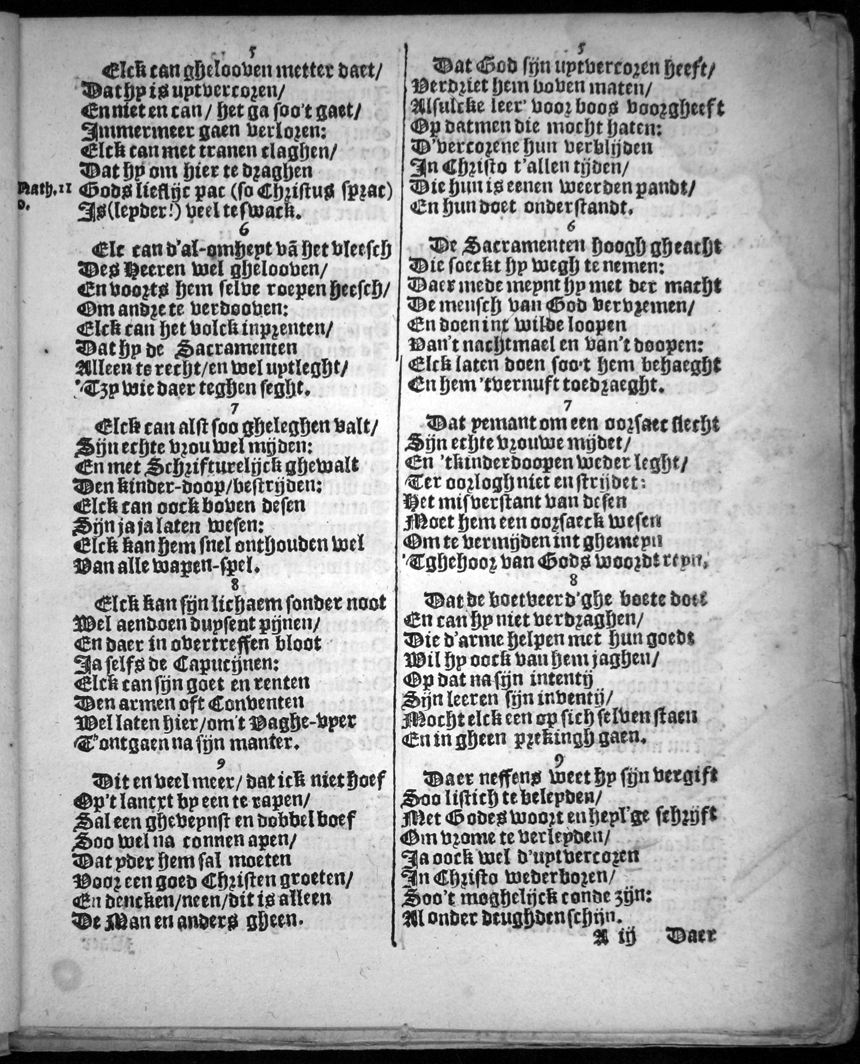 5
Elck can ghelooven metter daet/
Dat hy is uytvercoren/
En niet en can / het ga soo't gaet/
Immermeer gaen verloren:
Elck can met tranen claghen/
Dat hy om hier te draghen
Math. 11
Gods lieflijc pac (so Christus sprac)
Is (leyder!) veel te swack.
6
Elc can d'al-omheyt vā het vleesch
Des Heeren wel ghelooven/
En voorts hem selve roepen heesch/
Om andre te verdooven:
Elck can het volck inprenten/
Dat hy de Sacramenten
Alleen te recht/en wel uytleght/
'Tzy wie daer teghen seght.
7
Elck can alst soo gheleghen valt/
Sijn echte vrou wel mijden:
En met Schrifturelijck ghewalt
Den kinder-doop/bestrijden:
Elck can oock boven desen
Sijn ja ja laten wesen:
Elck kan hem snel onthouden wel
Van alle wapen-spel.
8
Elck kan sijn lichaem sonder noot
Wel aendoen duysent pijnen/
En daer in overtreffen bloot
Ja selfs de Capucijnen:
Elck can sijn goet en renten
Den armen oft Conventen
Wel laten hier/om't Vaghe-vyer
T'ontgaen na sijn manier.
9
Dit en veel meer/ dat ick niet hoef
Op't lancxt by een te rapen/
Sal een gheveynst en dobbel boef
Soo wel na connen apen/
Dat yder hem sal moeten
Voor een goed Christen groeten/
En dencken/neen/dit is alleen
De Man en anders gheen.
5
Dat God sijn uytvercoren heeft/
Verdriet hem boven maten/
Alsulcke leer' voor boos voorgheeft
Op datmen die mocht haten:
D'vercorene hun verblijden
In Christo t'allen tijden/
Die hun is eenen weerden pandt/
En hun doet onderstandt.
6
De Sacramenten hoogh gheacht
Die soeckt hy wegh te nemen:
Daer mede meynt hy met der macht
De mensch van God vervremen/
En doen int wilde loopen
Van't nachtmael en van't doopen:
Elck laten doen soo't hem behaeght
En hem 'tvernuft toedraeght.
7
Dat yemant om een oorsaec slecht
Sijn echte vrouwe mijdet/
En 'tkinderdoopen weder leght/
Ter oorlogh niet en strijdet:
Het misverstant van desen
Moet hem een oorsaeck wesen
Om te vermijden int ghemeyn
'Tghehoor van Gods woordt reyn.
8
Dat de boetveerd'ghe boete doet
En can hy niet verdraghen/
Die d'arme helpen met hun goedt
Wil hy oock van hem jaghen/
Op dat na sijn intentij
Sijn leeren sijn inventij/
Mocht elck een op sich selven staen
En in gheen prekingh gaen.
9
Daer neffens weet hy sijn vergift
Soo listich te beleyden/
Met Godes woort en heyl'ge schrijft
Om vrome te verleyden/
Ja oock wel d'uytvercoren
In Christo wederboren/
Soo't moghelijck conde zijn:
Al onder deughden schijn.
A ij Daer